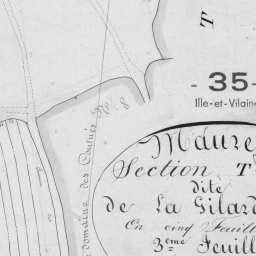 T
- 35-
Ille-et-Vilaine
N° 8
domaine des
Maure
Section T
dite
de La Gilard
En cinq Feuill
3ème Feuill